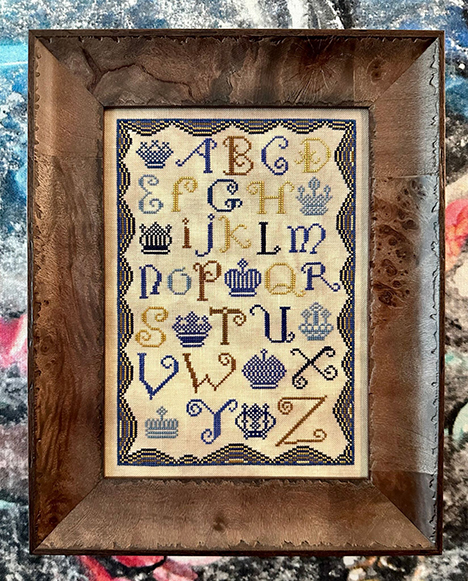 A B C D
E f G H
i j K L m
n O P Q R
S T U
V W X
Y Z